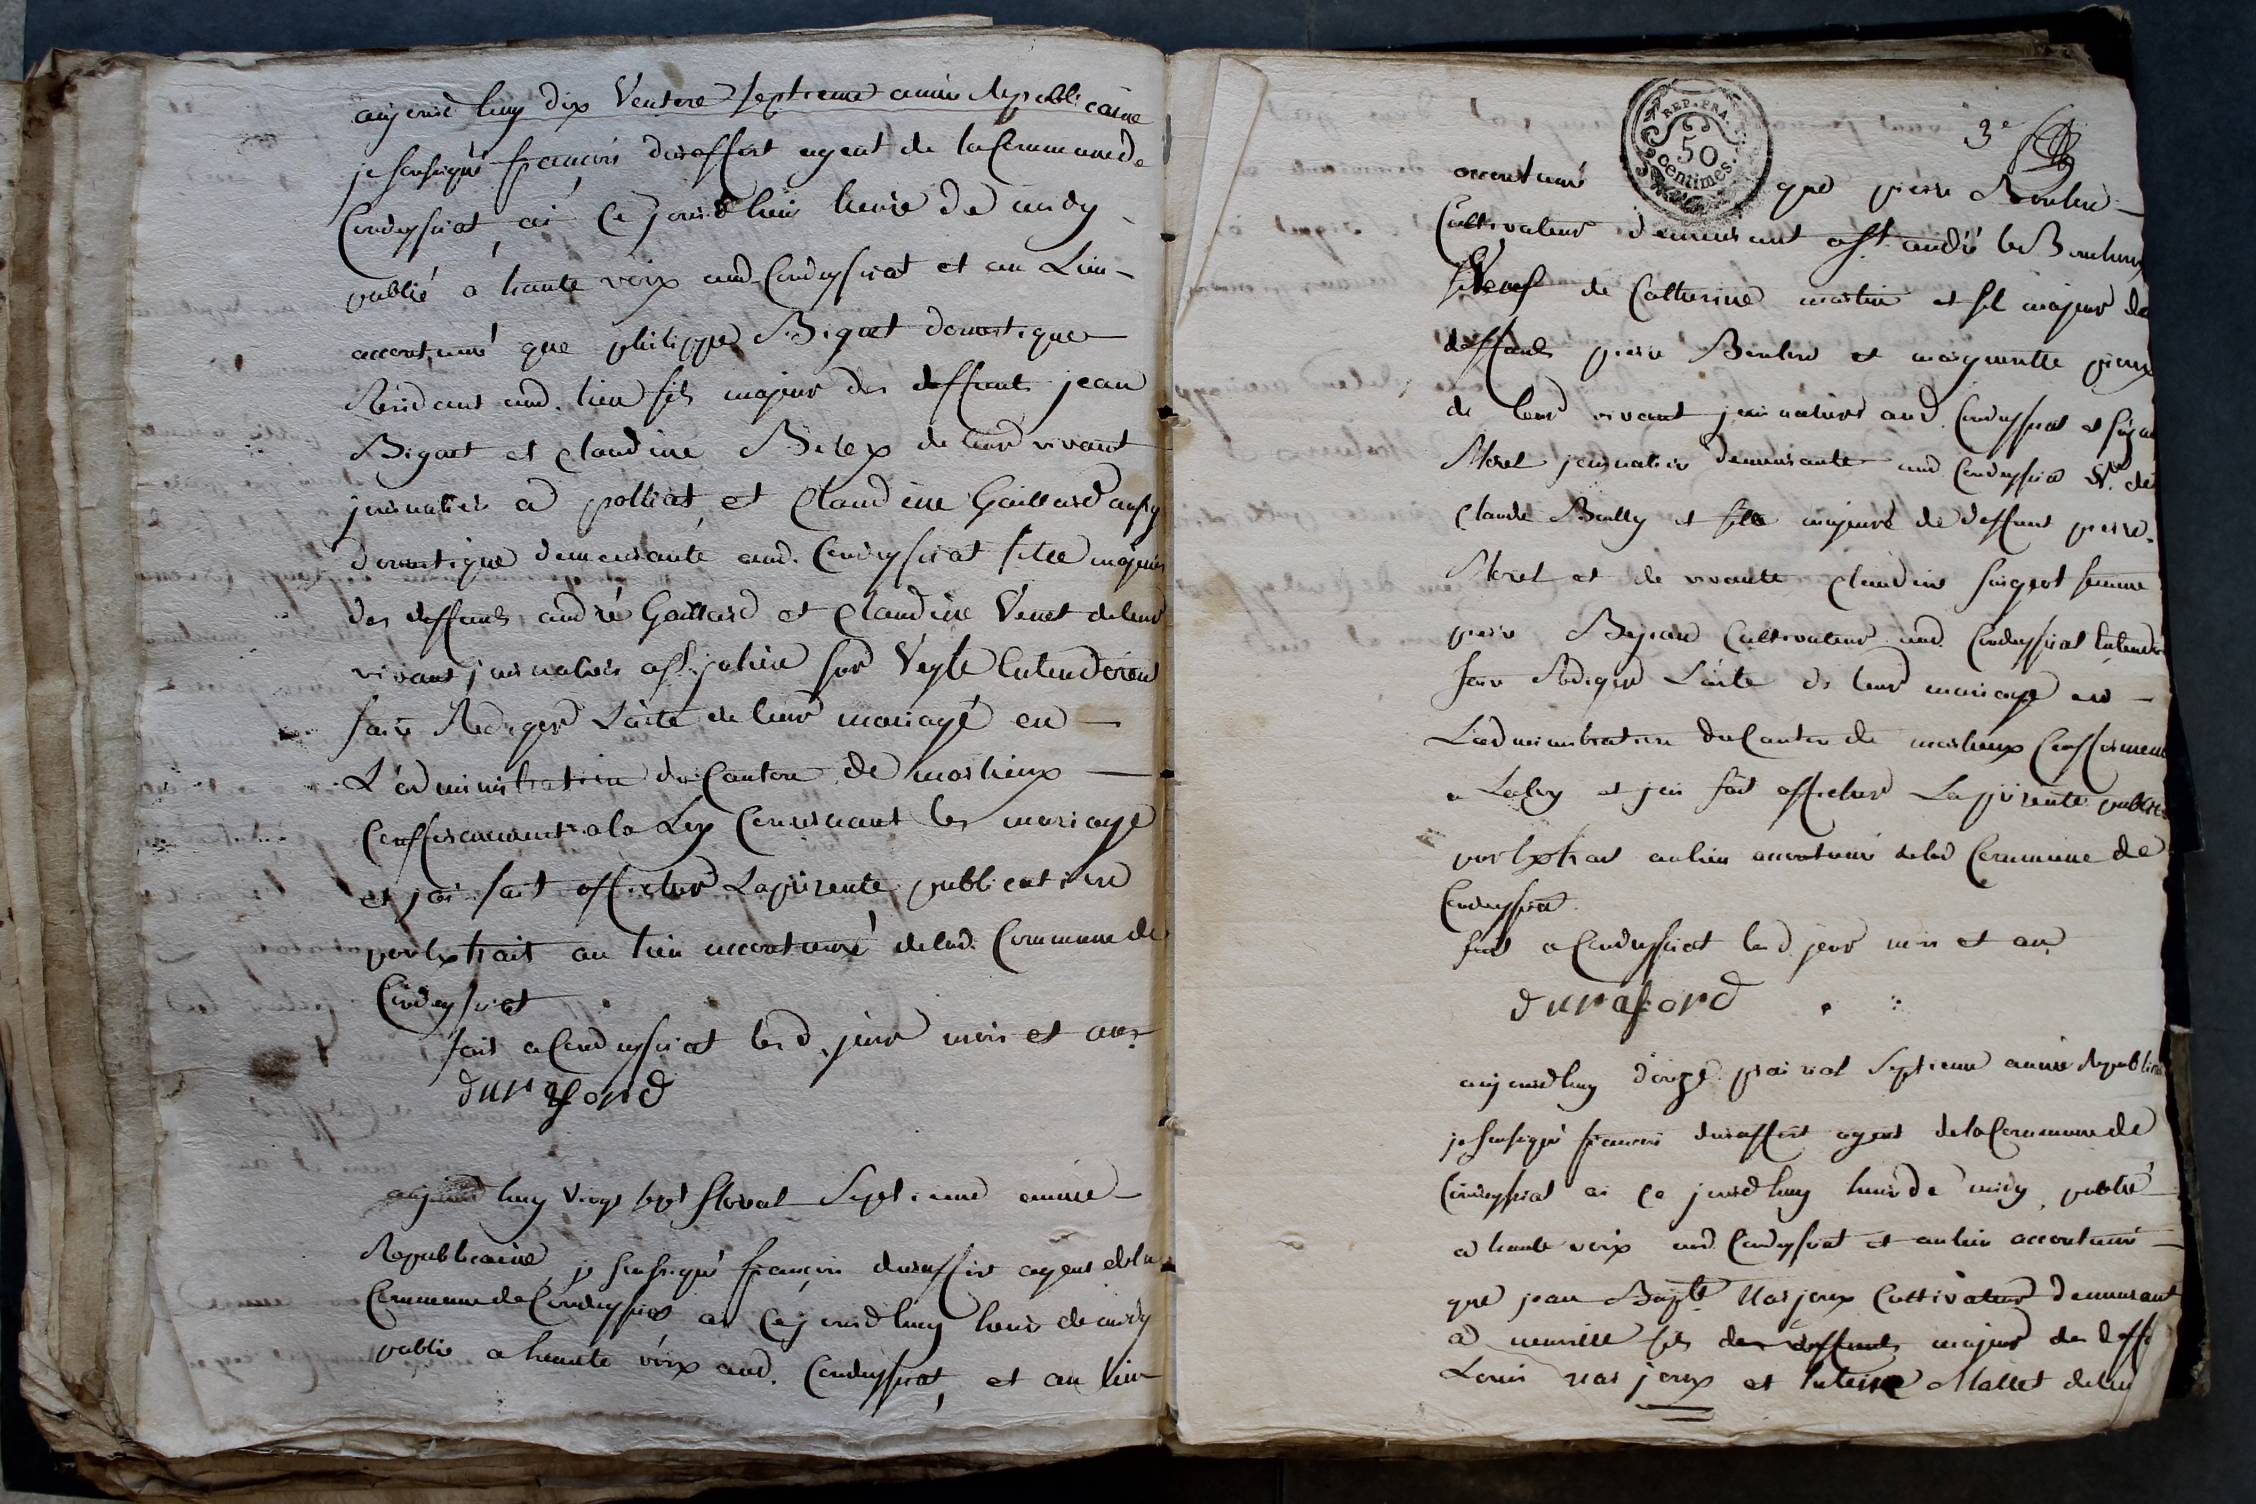 aujourd huy dix Ventose septieme année Republicaine
je soussigné françois duraffort agent de la Commune de
Condeyssiat ai Ce jourdhui heure de midy
publié a haute voix aud. Condeyssiat et au Lieu
accoutumé que philippe Biguet domestique
Residant aud. lieu fils majeur des deffunts jean
Biguet et Claudine de leur vivant
journaliers a polliat et Claudine Gaillard aussy
domestique demeurante aud. Condeyssiat fille majeure
des deffunts andré Gaillard et Claudine Venet de leur
vivant journaliers a St. julien sur Veyle
faire Rediger Lacte de leur mariage en
L'administration du Canton de marlieux
Confformement a la Loy Concernant les mariage
et jai fait afficher La présente publication
par Extrait au lieu accoutumé de lad. Commune de
Condeyssiat
fait a Condeyssiat led. jour mois et an.
duraford
aujourd huy Vingt sept floreal Septieme année
Republicaine je soussigné françois agent de la
Commune de Condeyssiat ai Cejourdhuy heure de midy
publié a haute voix aud. Condeyssiat, et au lieu
3e
REP. FRA.
50
centimes.
accoutumé que pierre
Cultivateur demeurant a St. andré le Bouchoux
Veuf de Catherine martin et fils majeur de
deffunts pierre et marguerite
de leur vivant journaliers aud. Condeyssiat et
Morel journaliere demeurante aud. Condeyssiat Ve. de
Claude Bailly et fille majeure de deffunt pierre
Morel et de vivante Claudine femme
pierre Cultivateur aud. Condeyssiat
faire Rediger Lacte de leur mariage en
L'administration du Canton de marlieux Confformement
a La loy et jai fait afficher La présente
par Extrait au lieu accoutumé de lad. Commune de
Condeyssiat.
fait a Condeyssiat led. jour mois et an.
duraford
aujourdhuy prairial Septieme année
je soussigné françois duraffort agent de la Commune de
Condeyssiat ai Ce jourdhuy heure de midy publié
a haute voix aud. Condeyssiat et au lieu accoutumé
que jean Bapte. Nasjoux Cultivateur demeurant
a neuville fils des deffunts majeur des deffts
Louis nasjoux et Mallet de leur